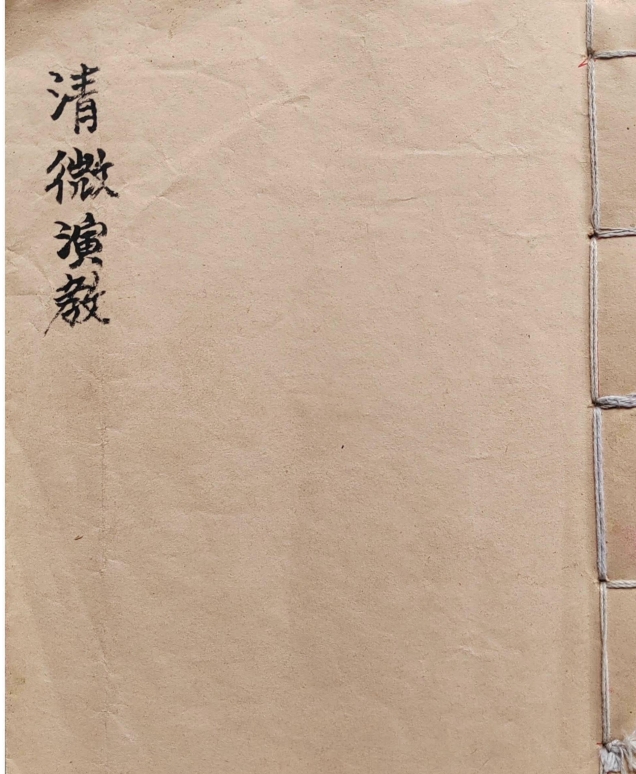 清微演教